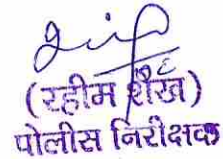 (रहीम शेख)
पोलीस निरीक्षक